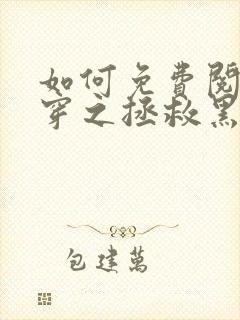 如何免費閱
穿之拯救黑
包建萬